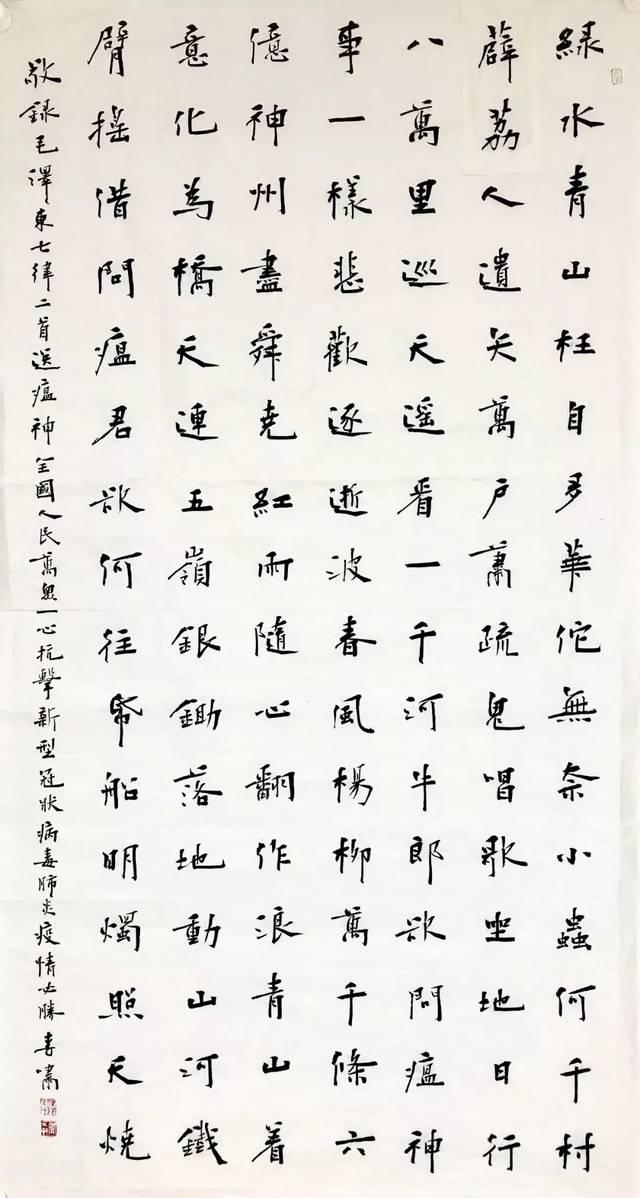 綠水青山枉自多華佗無奈小蟲何千村
薜荔人遺矢萬戶蕭疏鬼唱歌坐地日行
八萬里巡天遥看一千河牛郎欲問瘟神
事一樣悲歡逐逝波春風楊柳萬千條六
億神州盡舜堯紅雨隨心翻作浪青山着
意化為橋天連五嶺銀鋤落地動山河鐵
臂摇借問瘟君欲何往帋船明燭照天燒
敬録毛澤東七律二首送瘟神全國人民萬眾一心抗擊新型冠狀病毒肺炎疫情必勝 嘯